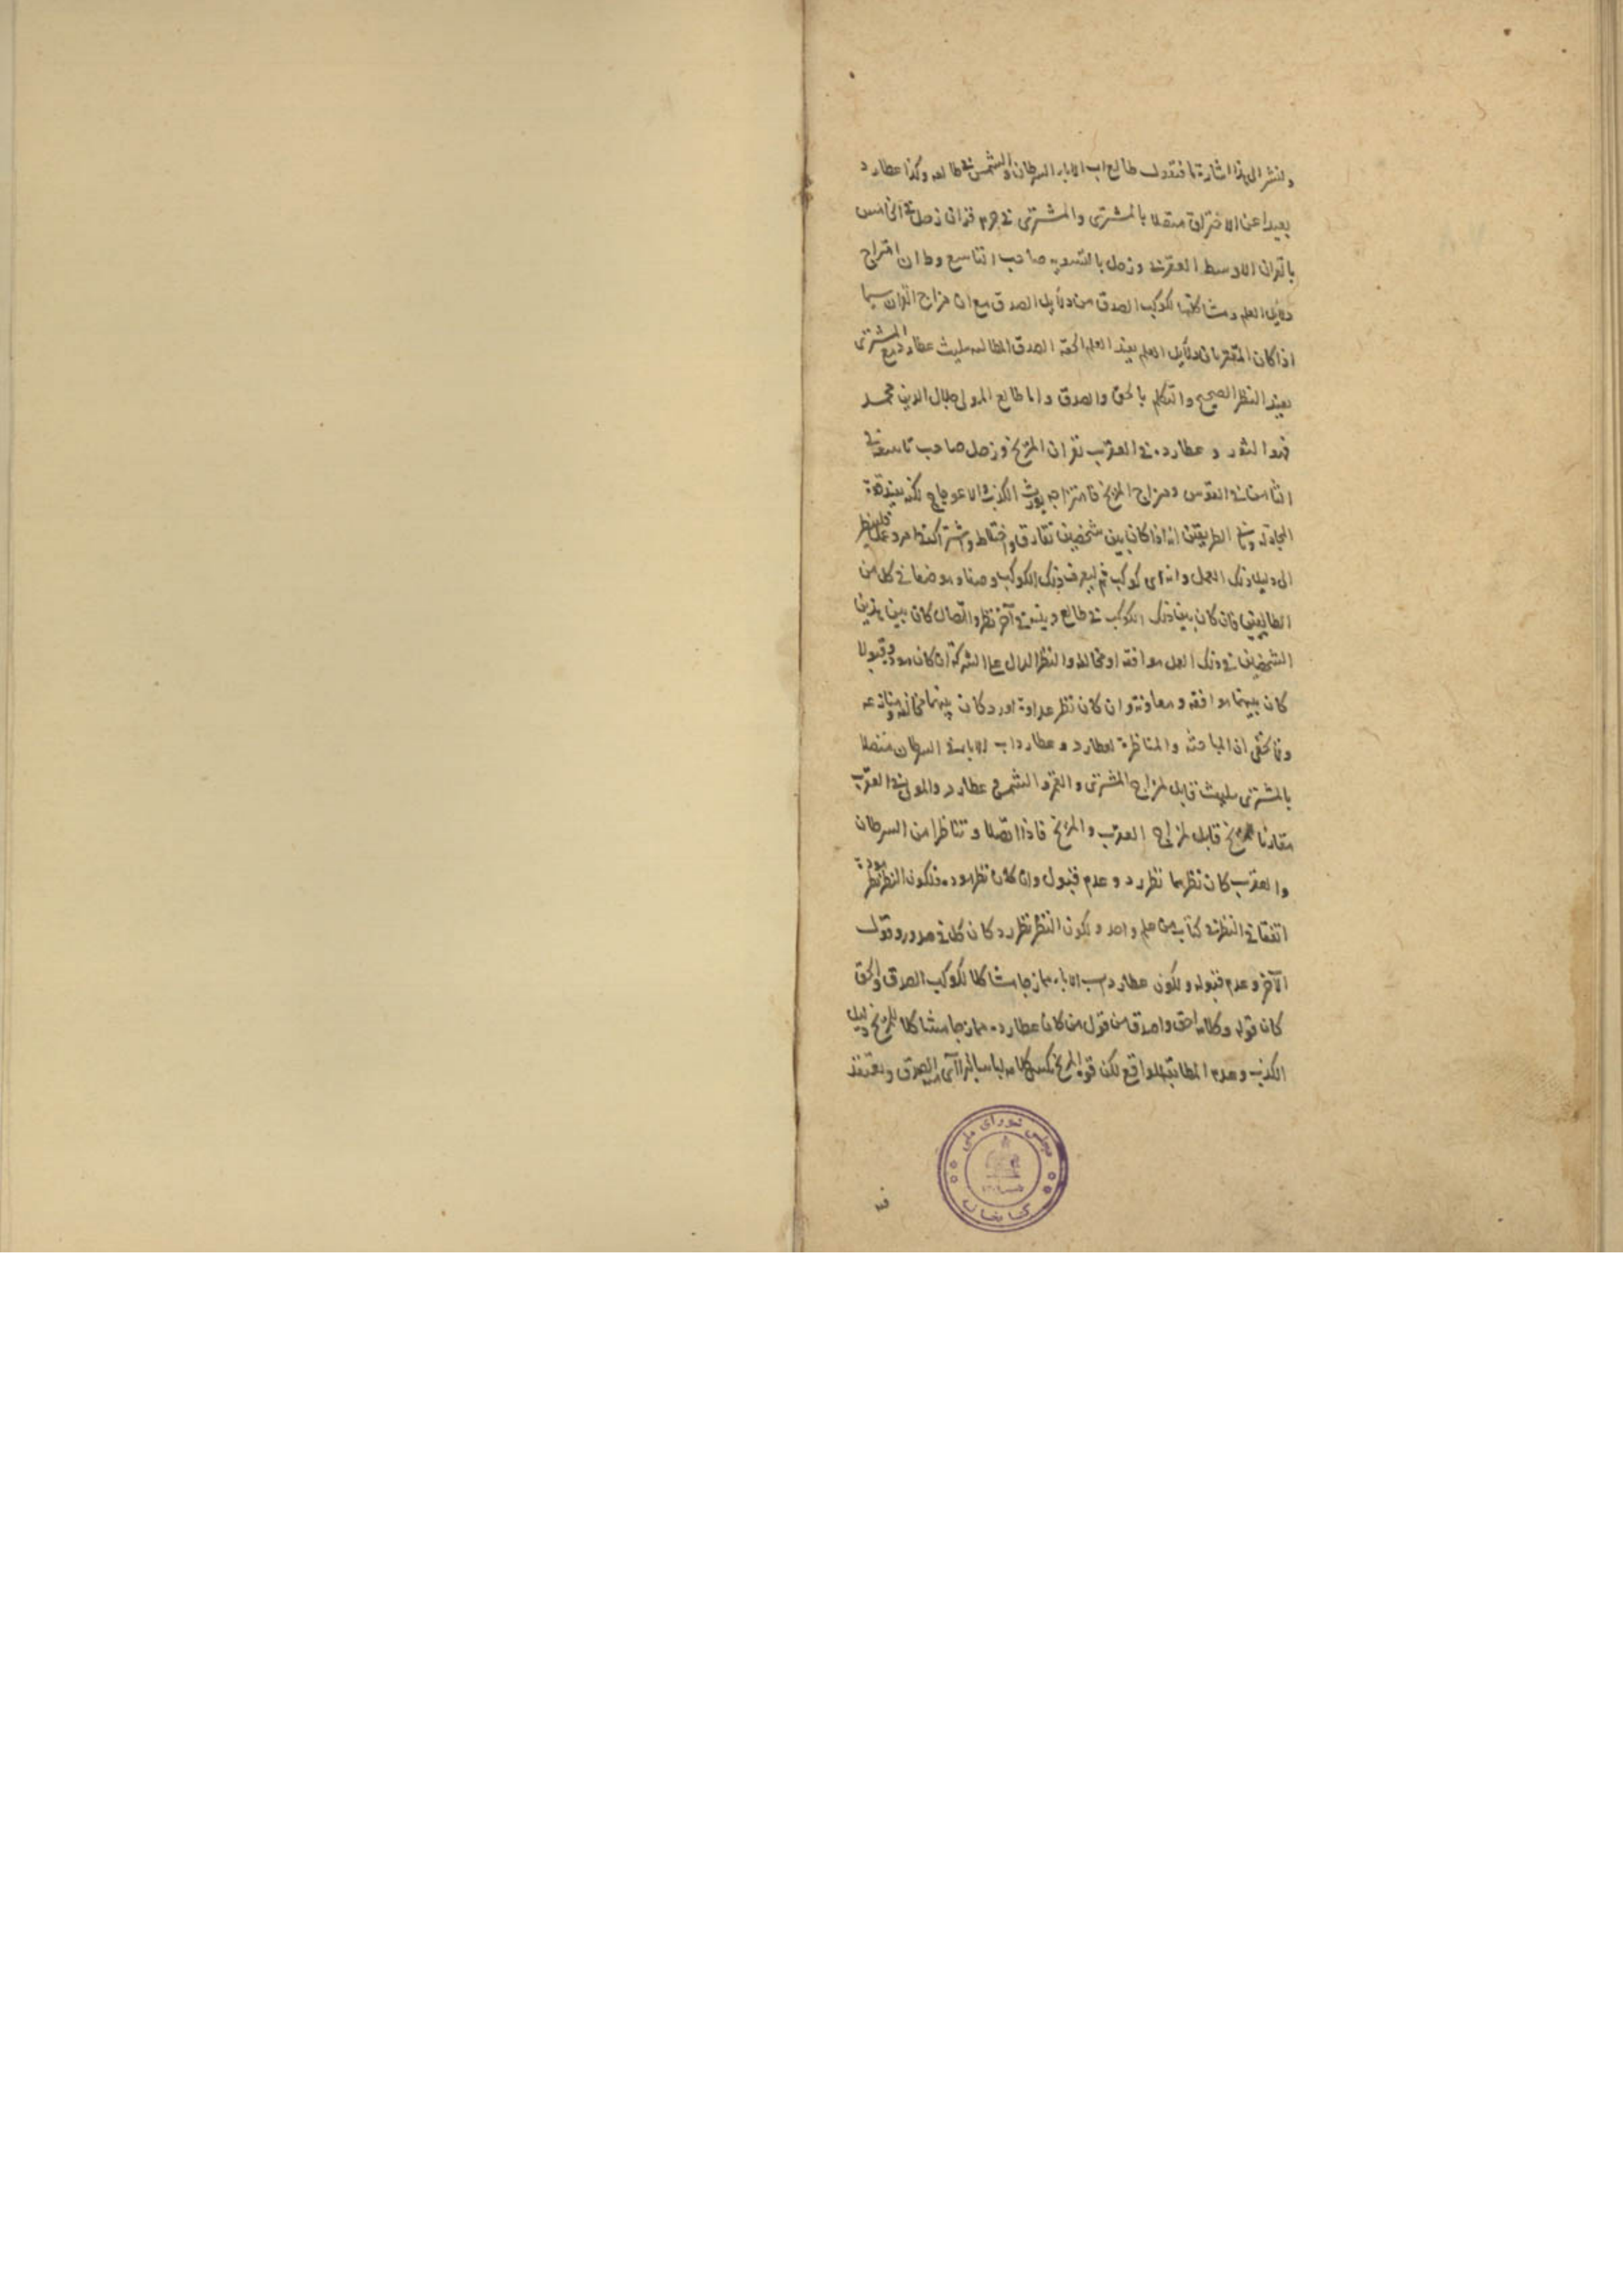 ولنشر الى هذا اشارة ما فنقول طالع اب الاباء السرطان والشمس فى طالعه وكذا عطارد
بعيدا عن الاحتراق متصلا بالمشترى والمشترى فى جرم قران زحل فى الخامس
بالقران الاوسط العقرب وزحل بالتسويه صاحب التاسع ان امتزاج
دلايل العلم ومشاكلتها لكوكب الصدق من دلايل الصدق مع ان مزاج القران سيما
اذا كان دلايل العلم يفيد العلم الصدق المطالع تثليث عطارد مع المشترى
يفيد النظر الصحيح والتكلم بالحق والصدق واما طالع المولى جلال الدين محمد
فهو الثور وعطارده فى العقرب بقران المريخ وزحل صاحب تاسعه فى
الثامن فى القوس ومزاج المريخ فامتزاجه يورث الكذب والاعوجاج لكنه يفيد قوة
المجادلة الطريقتين انه اذا كان بين شخصين تفارق واختلاط واشتراك فى امر وعمل فلينظر
الى دليل ذلك العمل وانه اى كوكب ثم ليعرف ذلك الكوكب وصفا وموضعا فى كل من
الطالعين فان كان بين ذلك الكوكب فى طالع وبينه فى آخر نظر واتصال كان بين هذين
الشخصين فى ذلك العمل موافقه او مخالطه والنظر الدال على الشركة ان كان مودة وقبولا
كان بينهما موافقه ومعاونة وان كان نظر عداوة او رد كان بينهما مخالفه ومنازعه
ان المباحثه والمناظرة لعطارد وعطارد اب الاباء فى السرطان متصلا
بالمشترى بتثليث قابل لمزاج المشترى والقمر والشمس عطارد والمولى فى العقرب
مقارنا للمريخ قابل لمزاج العقرب والمريخ فاذا اتصلا وتناظرا من السرطان
والعقرب كان نظرهما نظر رد وعدم قبول وان كان نظر مودة فلكون النظر نظر مودة
اتفقا فى النظر فى كتاب من علم واحد ولكون النظر نظر رد كان كل فى صدد رد قول
الآخر وعدم قبوله ولكون عطارد اب الاباء ممازجا مشاكلا لكوكب الصدق والحق
كان قوله وكلامه احق واصدق من قول من كان عطارده ممازجا مشاكلا للمريخ دليل
الكذب وعدم المطابقة للواقع لكن قوة المريخ
مجلس شوراى ملى
كتابخانه